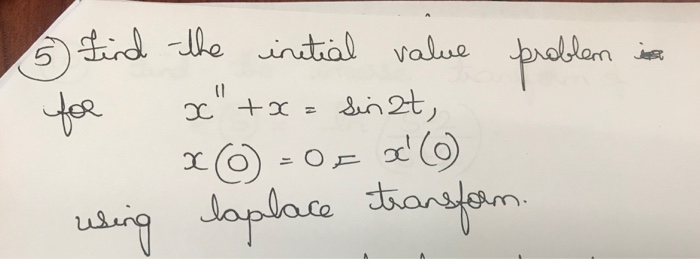 5) Find the initial value problem
for x'' + x = sin2t,
x(0) = 0 = x'(0)
using laplace transform.